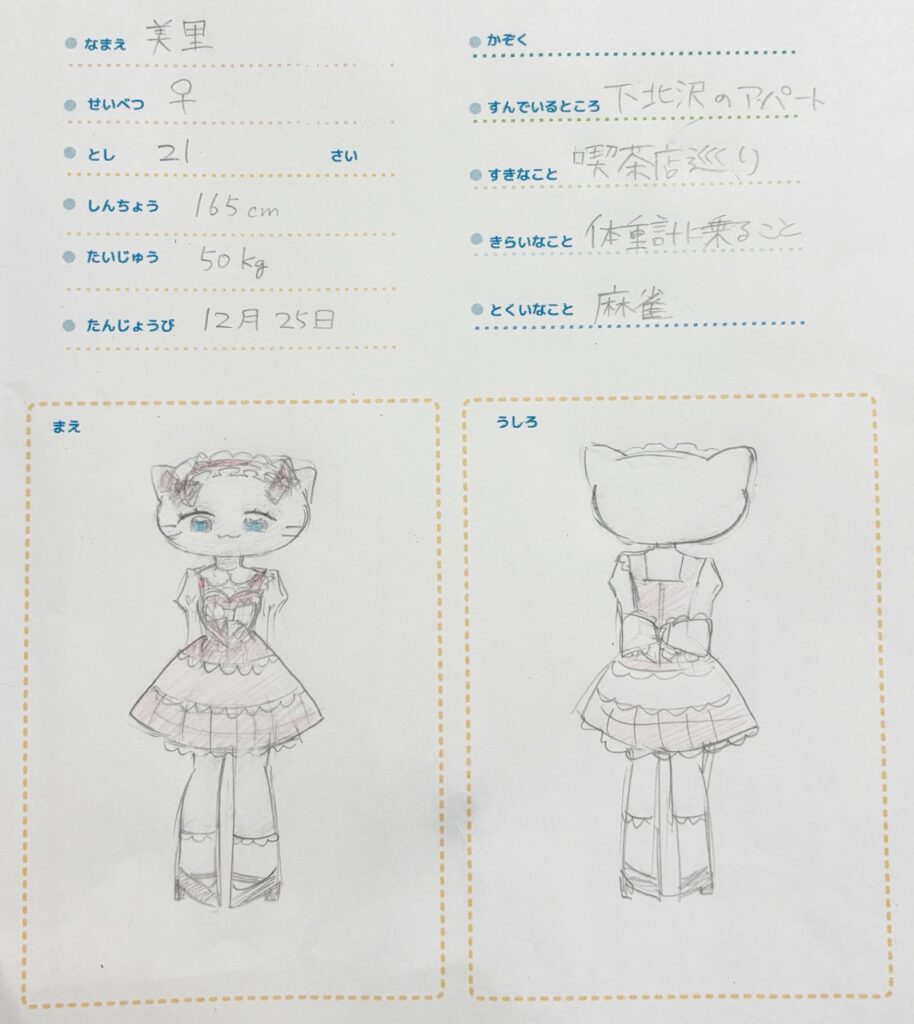 なまえ 美里
せいべつ ♀
とし 21 さい
しんちょう 165cm
たいじゅう 50kg
たんじょうび 12月25日
かぞく
すんでいるところ 下北沢のアパート
すきなこと 喫茶店巡り
きらいなこと 体重計に乗ること
とくいなこと 麻雀
まえ
うしろ